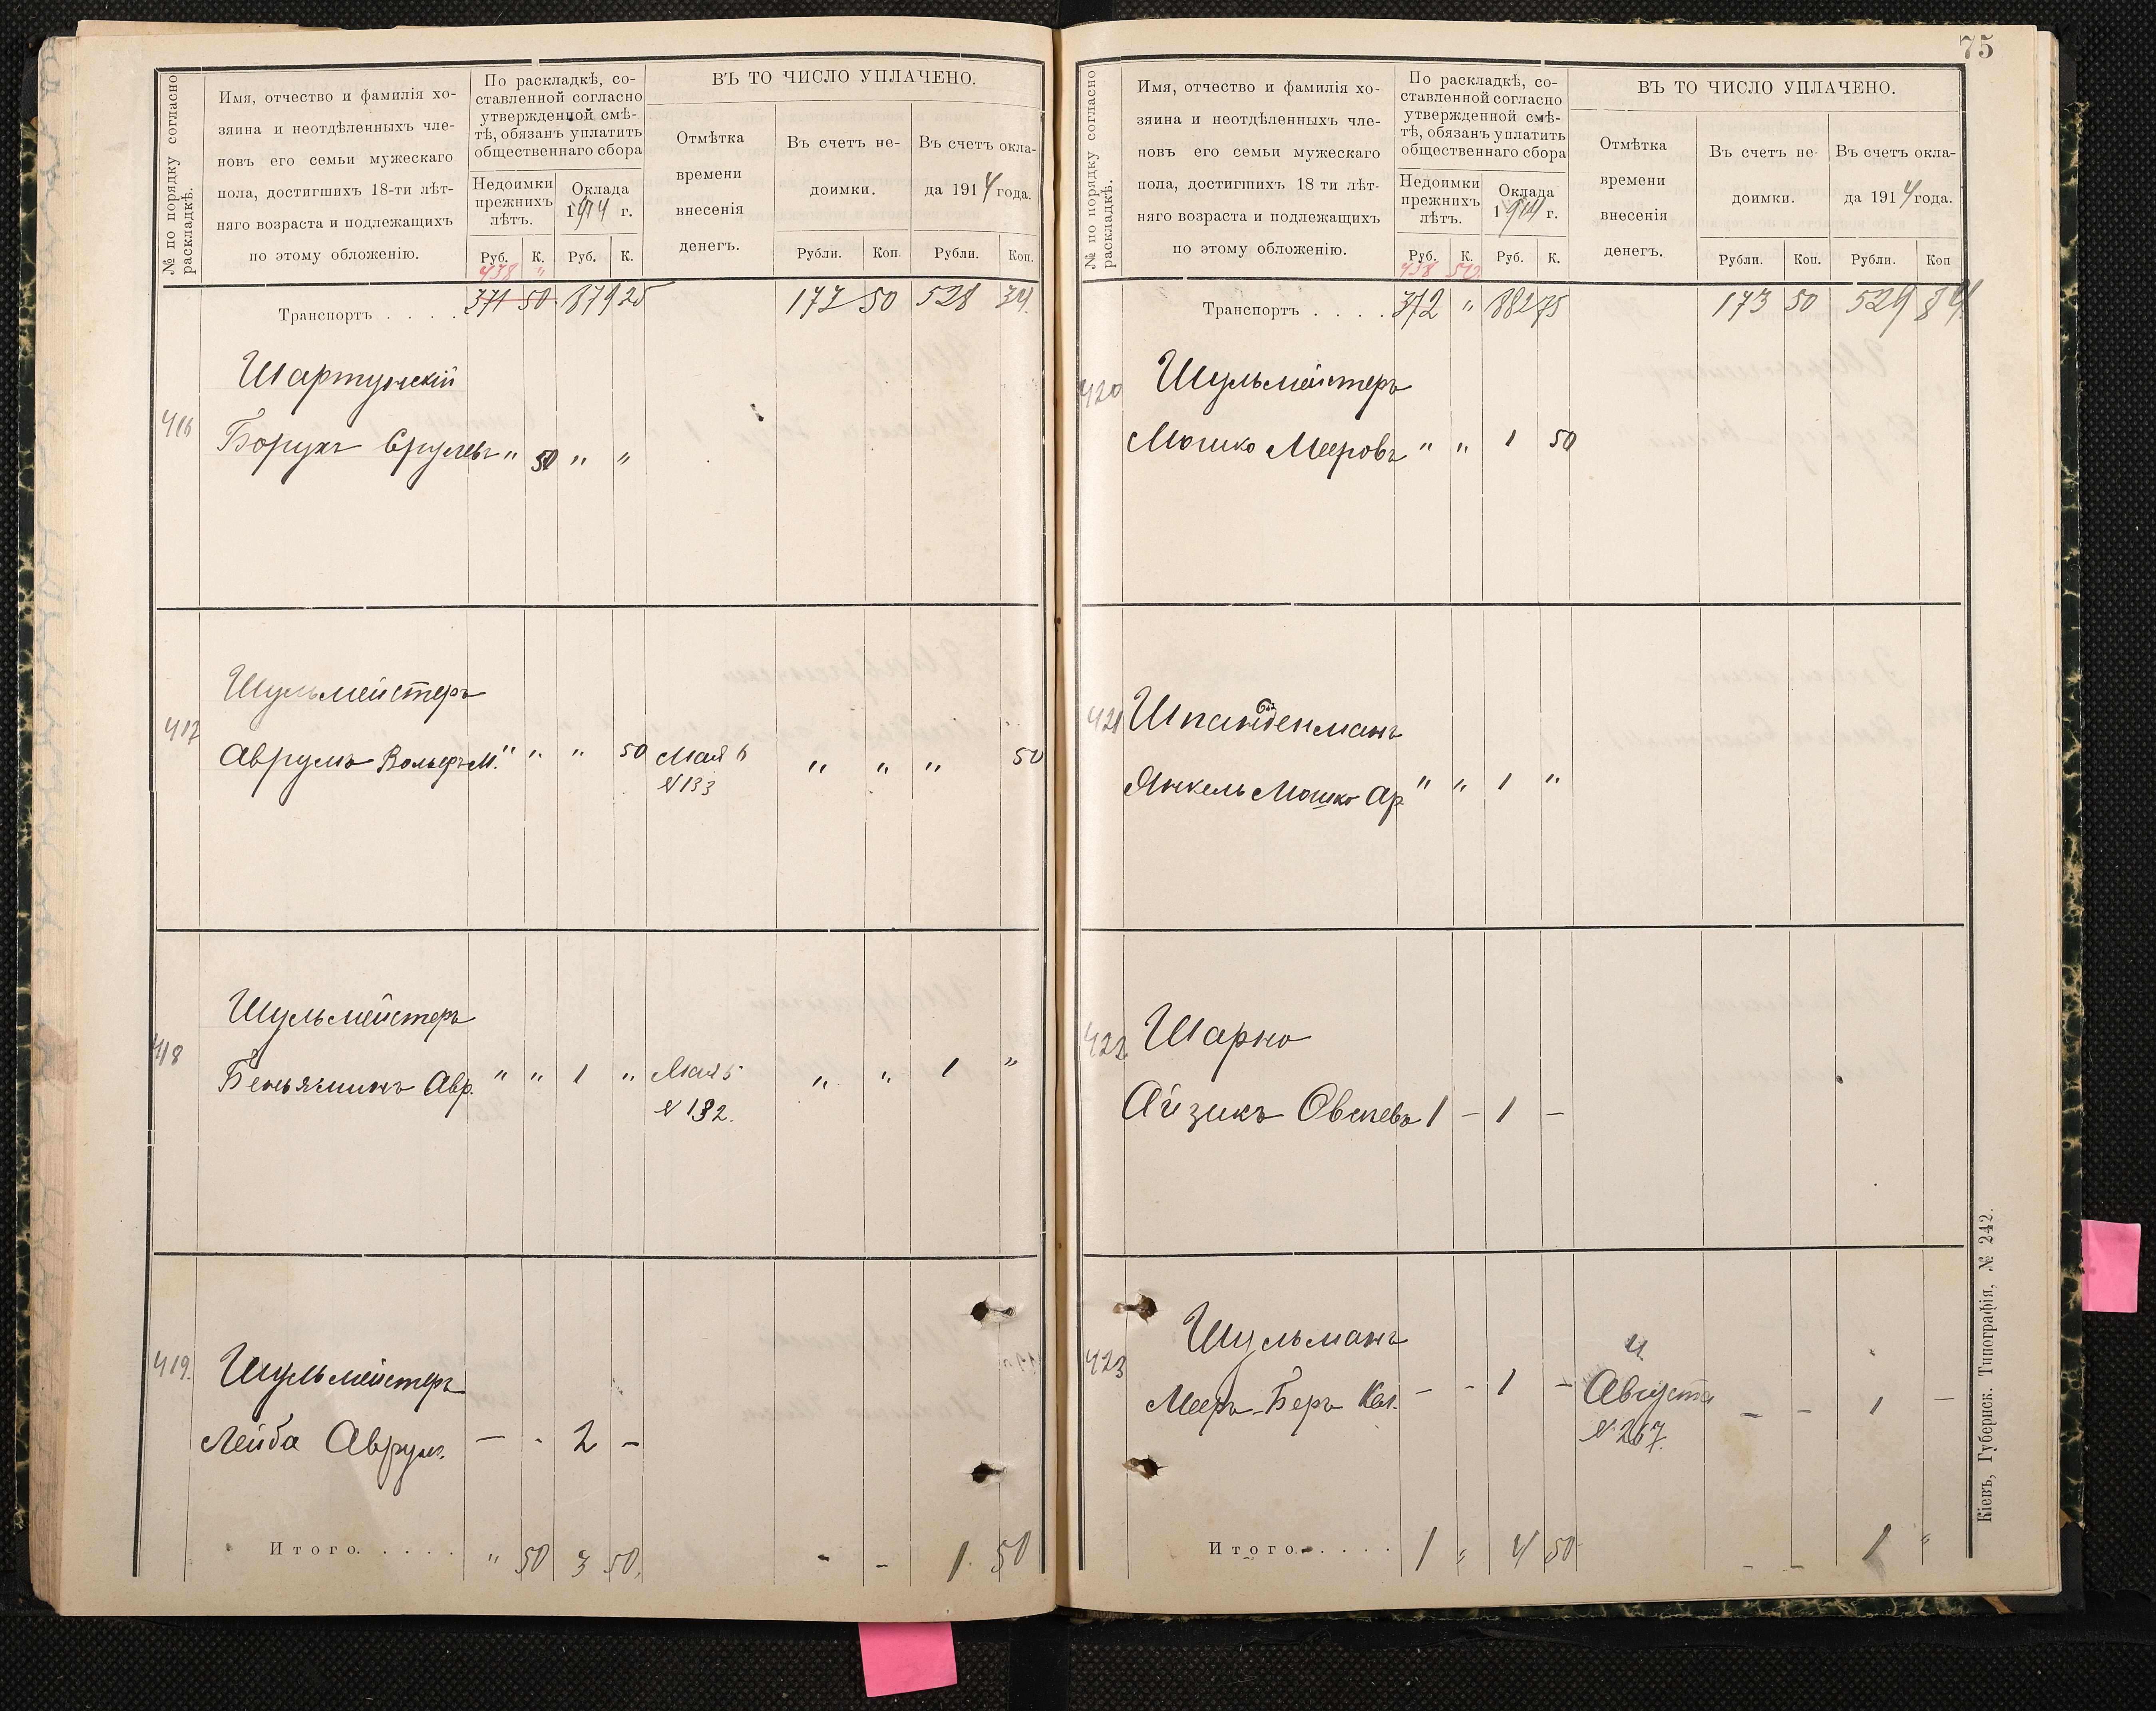 № по порядку согласно
раскладкѣ.
Имя, отчество и фамилія хо-
зяина и неотдѣленныхъ чле-
новъ его семьи мужескаго
пола, достигшихъ 18-ти лѣт-
няго возраста и подлежащихъ
по этому обложенію.
По раскладкѣ, со-
ставленной согласно
утвержденной смѣ-
тѣ, обязанъ уплатить
общественнаго сбора
Недоимки
прежнихъ
лѣтъ.
Оклада
1914 г.
Руб. К. Руб. К.
ВЪ ТО ЧИСЛО УПЛАЧЕНО.
Отмѣтка
времени
внесенія
денегъ.
Въ счетъ не-
доимки.
Въ счетъ окла-
да 1914 года.
Рубли. Коп. Рубли. Коп.
438 "
Транспортъ . . . . 371 50 879 25 173 50 528 34
416
Борухъ Срулевъ " 50 " "
417
Шульмейстеръ
Аврумъ Вольфъ М. " " " 50 Мая 6 " " " 50
N 133
418
Шульмейстеръ
Беньяминъ Авр. " " 1 " Мая 5 " " 1 "
N 132.
419.
Шульмейстеръ
Лейба Аврум. — - 2 —
Итого. . . . . " 50 3 50 - - 1. 50
75
№ по порядку согласно
раскладкѣ.
Имя, отчество и фамилія хо-
зяина и неотдѣленныхъ чле-
новъ его семьи мужескаго
пола, достигшихъ 18 ти лѣт-
няго возраста и подлежащихъ
по этому обложенію.
По раскладкѣ, со-
ставленной согласно
утвержденной смѣ-
тѣ, обязанъ уплатить
общественнаго сбора
Недоимки
прежнихъ
лѣтъ.
Оклада
1914 г.
Руб. К. Руб. К.
ВЪ ТО ЧИСЛО УПЛАЧЕНО.
Отмѣтка
времени
внесенія
денегъ.
Въ счетъ не-
доимки.
Въ счетъ окла-
да 1914 года.
Рубли. Коп. Рубли. Коп
438 50
Транспортъ . . . . 372 " 882 75 173 50 529 84
420
Шульмейстеръ
Мошко Мееровъ " " 1 50
421
Янкель Мошко Ар " " 1 "
422
Шарно
Айзикъ Овсіевъ 1 — 1 —
423
Шульманъ
Мееръ-Беръ — - 1 — Августа — - 1 —
N 267.
Итого. . . . . 1 " 4 50 - - 1 "
Кіевъ, Губернск. Типографія, № 242.